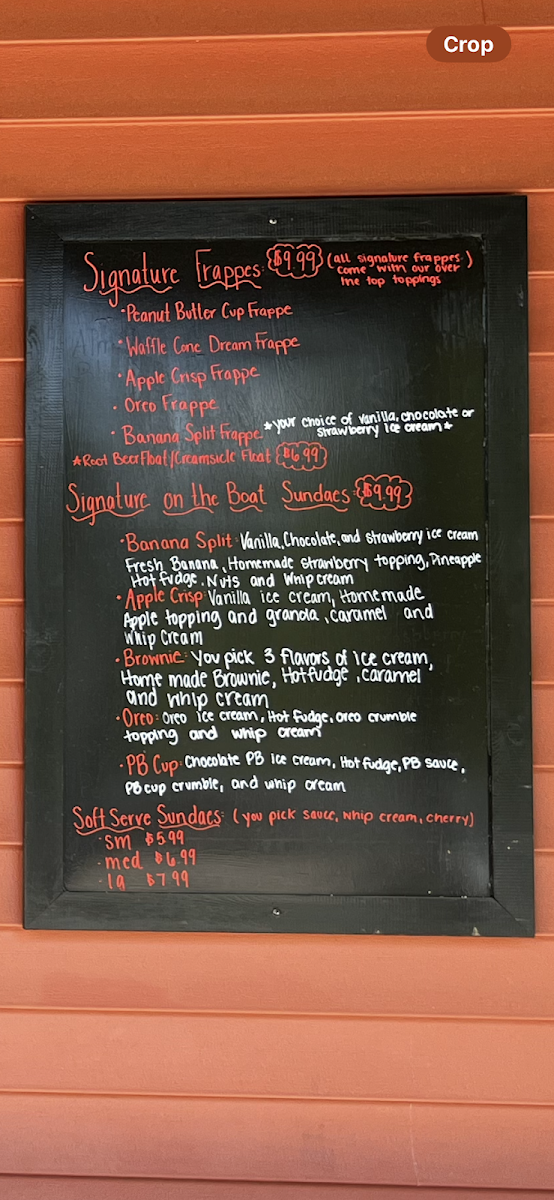 Crop
Signature Frappes: $9.99 (all signature frappes
come with our over
the top toppings)
·Peanut Butter Cup Frappe
·Waffle Cone Dream Frappe
·Apple Crisp Frappe
·Oreo Frappe
·Banana Split Frappe *your choice of vanilla, chocolate or
strawberry ice cream*
*Root Beer Float/Creamsicle Float $6.99
Signature on the Boat Sundaes: $9.99
·Banana Split: Vanilla, Chocolate, and strawberry ice cream
Fresh Banana, Homemade strawberry topping, Pineapple
Hot fudge, Nuts and Whip cream
·Apple Crisp: Vanilla ice cream, Homemade
Apple topping and granola, caramel and
Whip Cream
·Brownie: You pick 3 flavors of ice cream,
Home made Brownie, Hot fudge, caramel
and whip cream
·Oreo: Oreo ice cream, Hot Fudge, oreo crumble
topping and whip cream
·PB Cup: Chocolate PB ice cream, Hot fudge, PB sauce,
PB cup crumble, and whip cream
Soft Serve Sundaes: (you pick sauce, whip cream, cherry)
·sm $5.99
·med $6.99
·lg $7.99